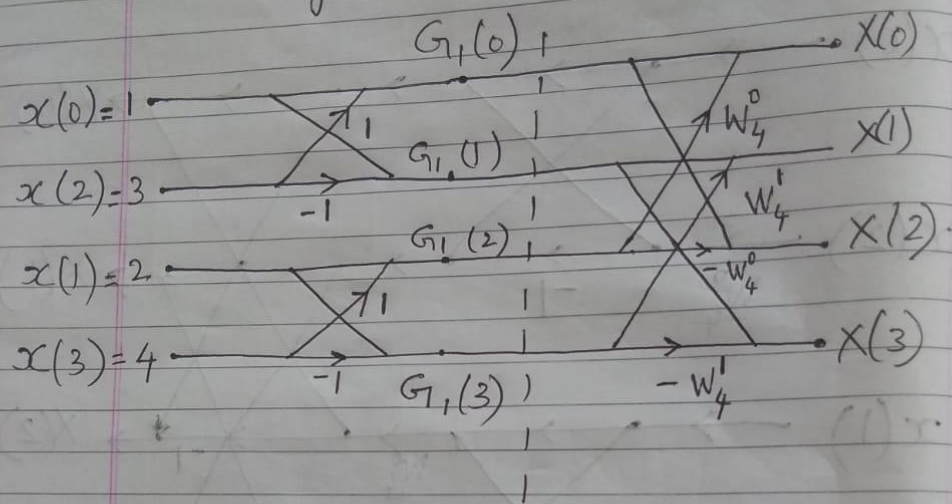 G₁(0)
X(0)
x(0)=1
1
W₄⁰
G₁(1)
X(1)
x(2)=3
-1
W₄¹
G₁(2)
X(2)
x(1)=2
1
-W₄⁰
x(3)=4
-1
G₁(3)
-W₄¹
X(3)